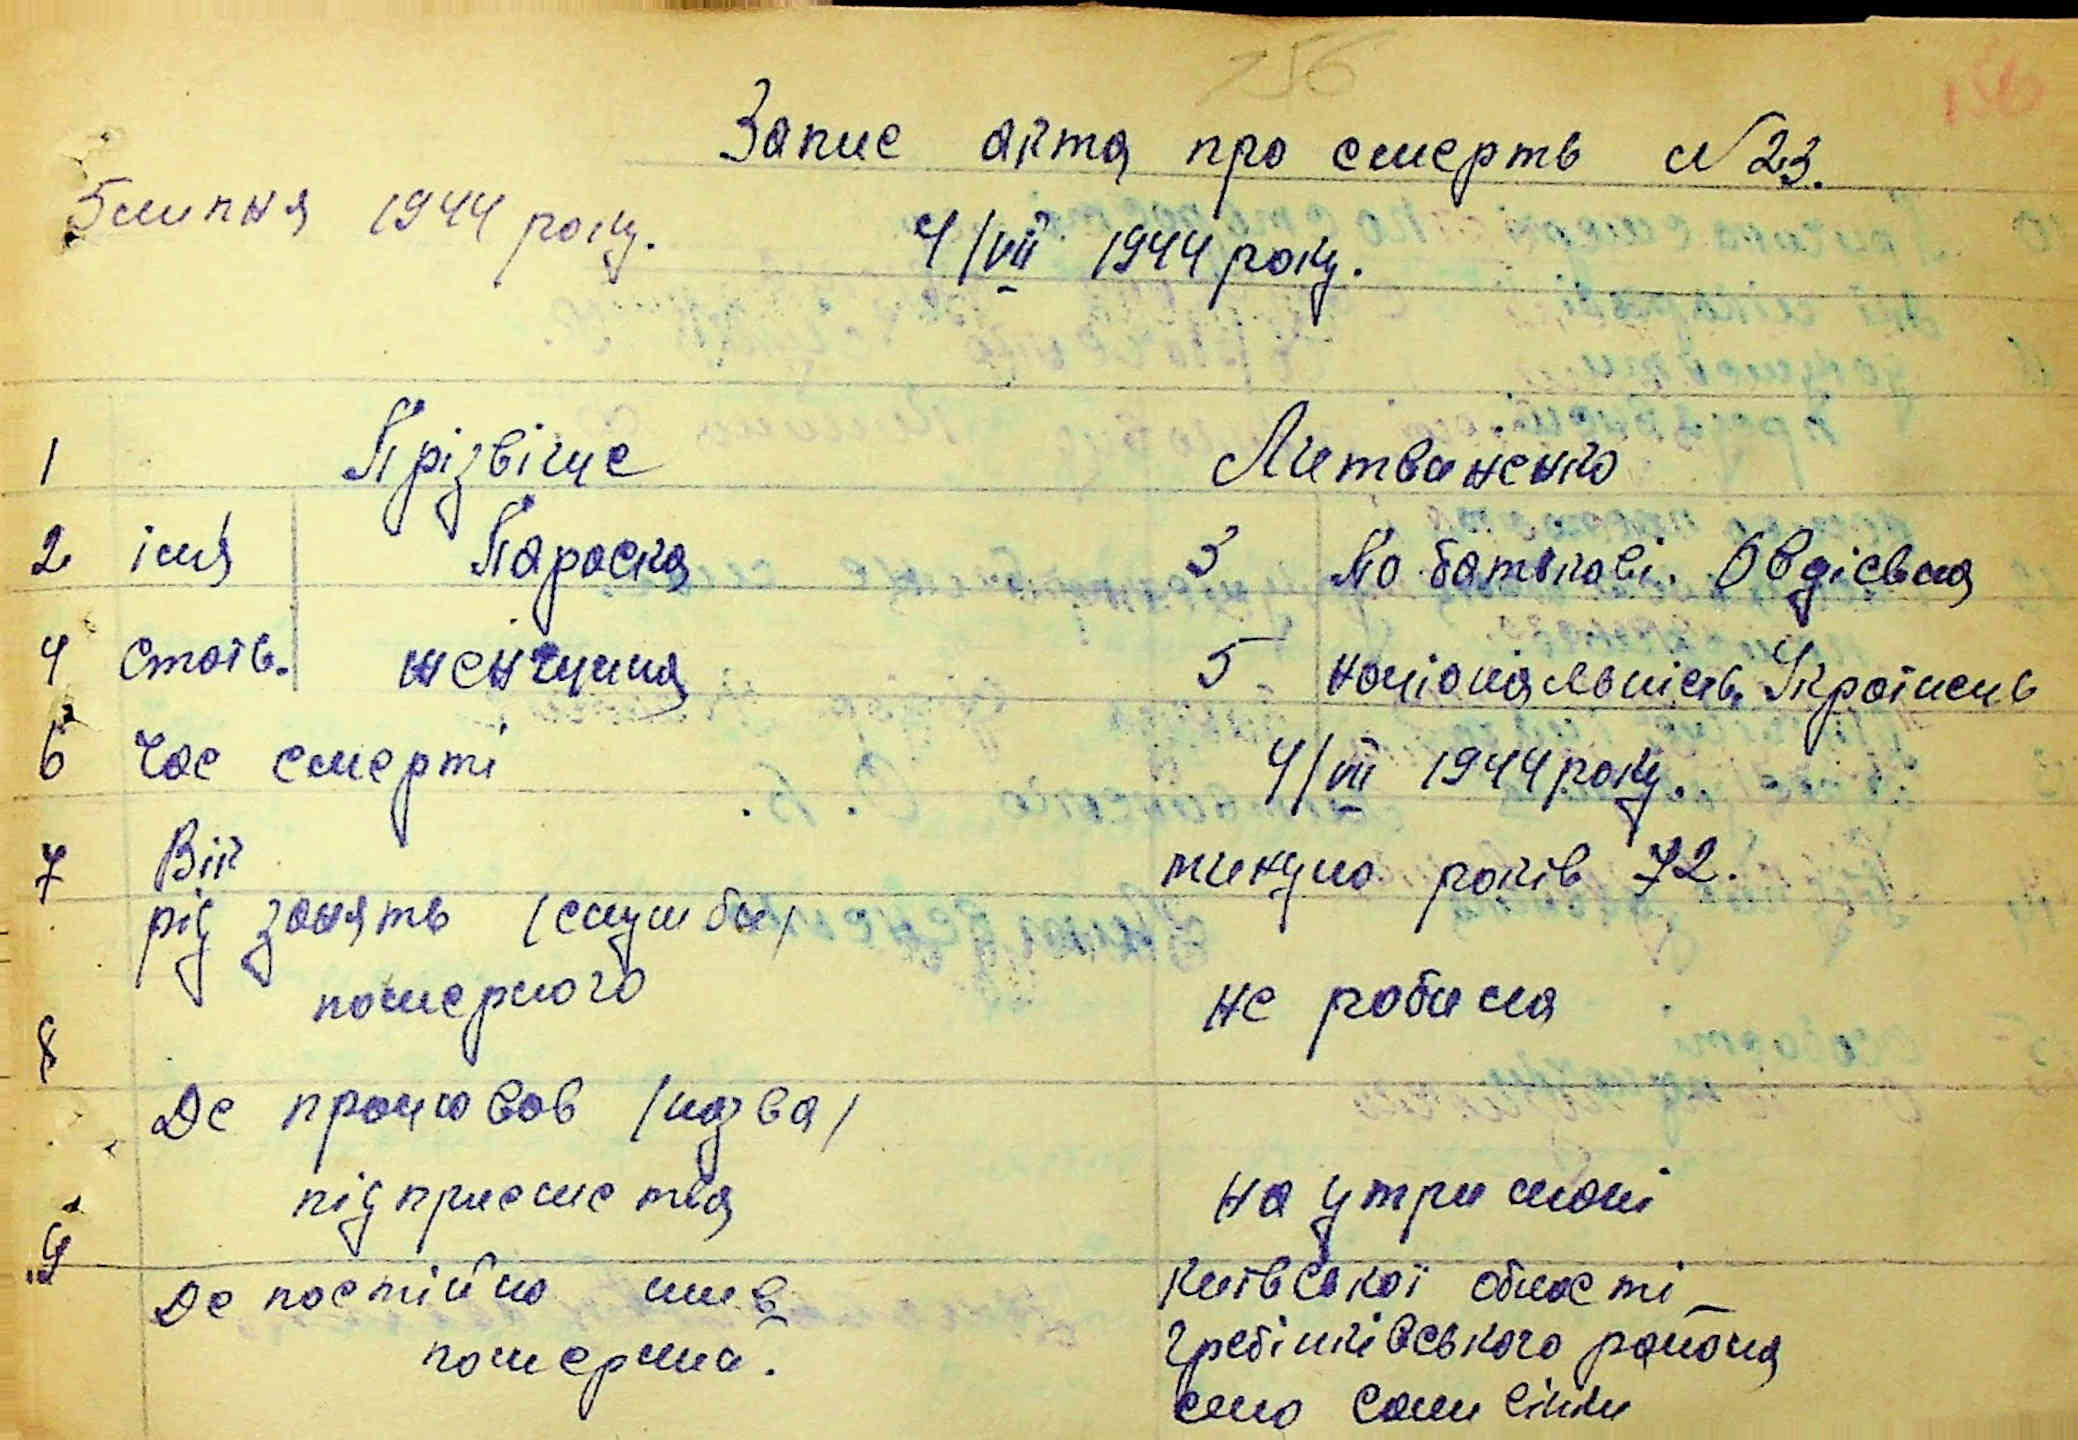 156
156
Запис акта про смерть №23.
5 липня 1944 року.
4/VII 1944 року.
1 Прізвіще Литвиненко
2 імя Параска 3 По батькові. Овдіевна
4 стать. женчина 5 націанальність Українець
6 Час смерті 4/VII 1944 року.
7 Вік минуло років 72.
рід занять (служби)
помершого не робила
8
Де працював (назва)
підприємства на утримані
9
Де постійно жив Київської області
померший. Гребінківського района
село Салиvінки